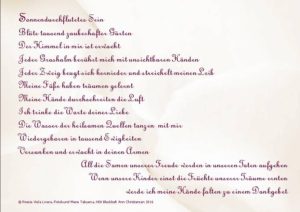 Sonnendurchflutetes Sein
Blüte tausend zauberhafter Gärten
Der Himmel in mir ist erwacht
Jeder Grashalm berührt mich mit unsichtbaren Händen
Jeder Zweig beugt sich hernieder und streichelt meinen Leib
Meine Füße haben träumen gelernt
Meine Hände durchschreiten die Luft
Ich trinke die Worte deiner Liebe
Die Wasser der heilsamen Quellen tanzen mit mir
Wiedergeboren in tausend Ewigkeiten
Versunken und erwacht in deinen Armen
All die Samen unserer Freude werden in unseren Taten aufgehen
Wenn unsere Kinder einst die Früchte unserer Träume ernten
werde ich meine Hände falten zu einem Dankgebet
© Poesie: Viola Livera, Fotokunst Marie Taluama, Mit